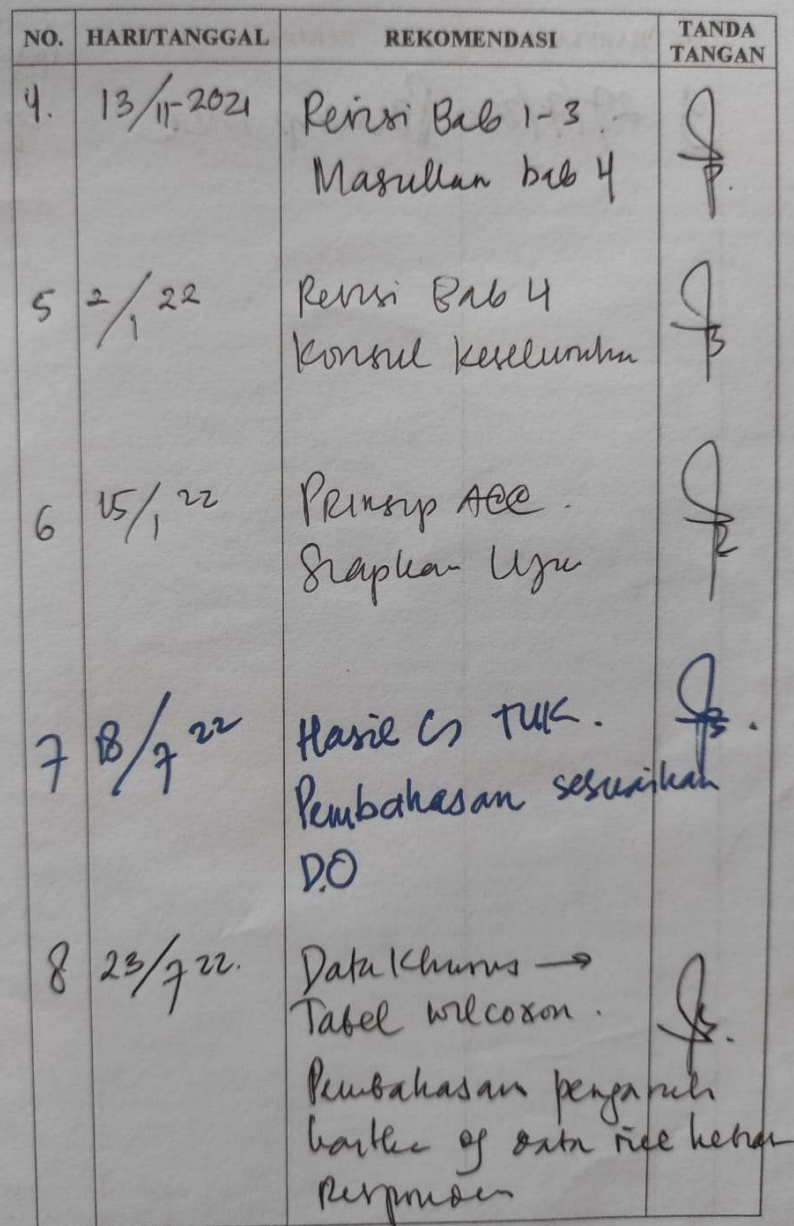 NO. HARI/TANGGAL REKOMENDASI TANDA TANGAN
4. 13/11-2021 Revisi Bab 1-3.
Masukkan bab 4
5 2/1 22 Revisi Bab 4
Konsul keseluruhan
6 15/1 22 Prinsip ACC.
Siapkan Ujian
7 18/7 22 Hasil TUK.
Pembahasan sesuaikan
D.O
8 23/7 22. Data Khusus →
Tabel wilcoxon.
Pembahasan pengaruh
Responden